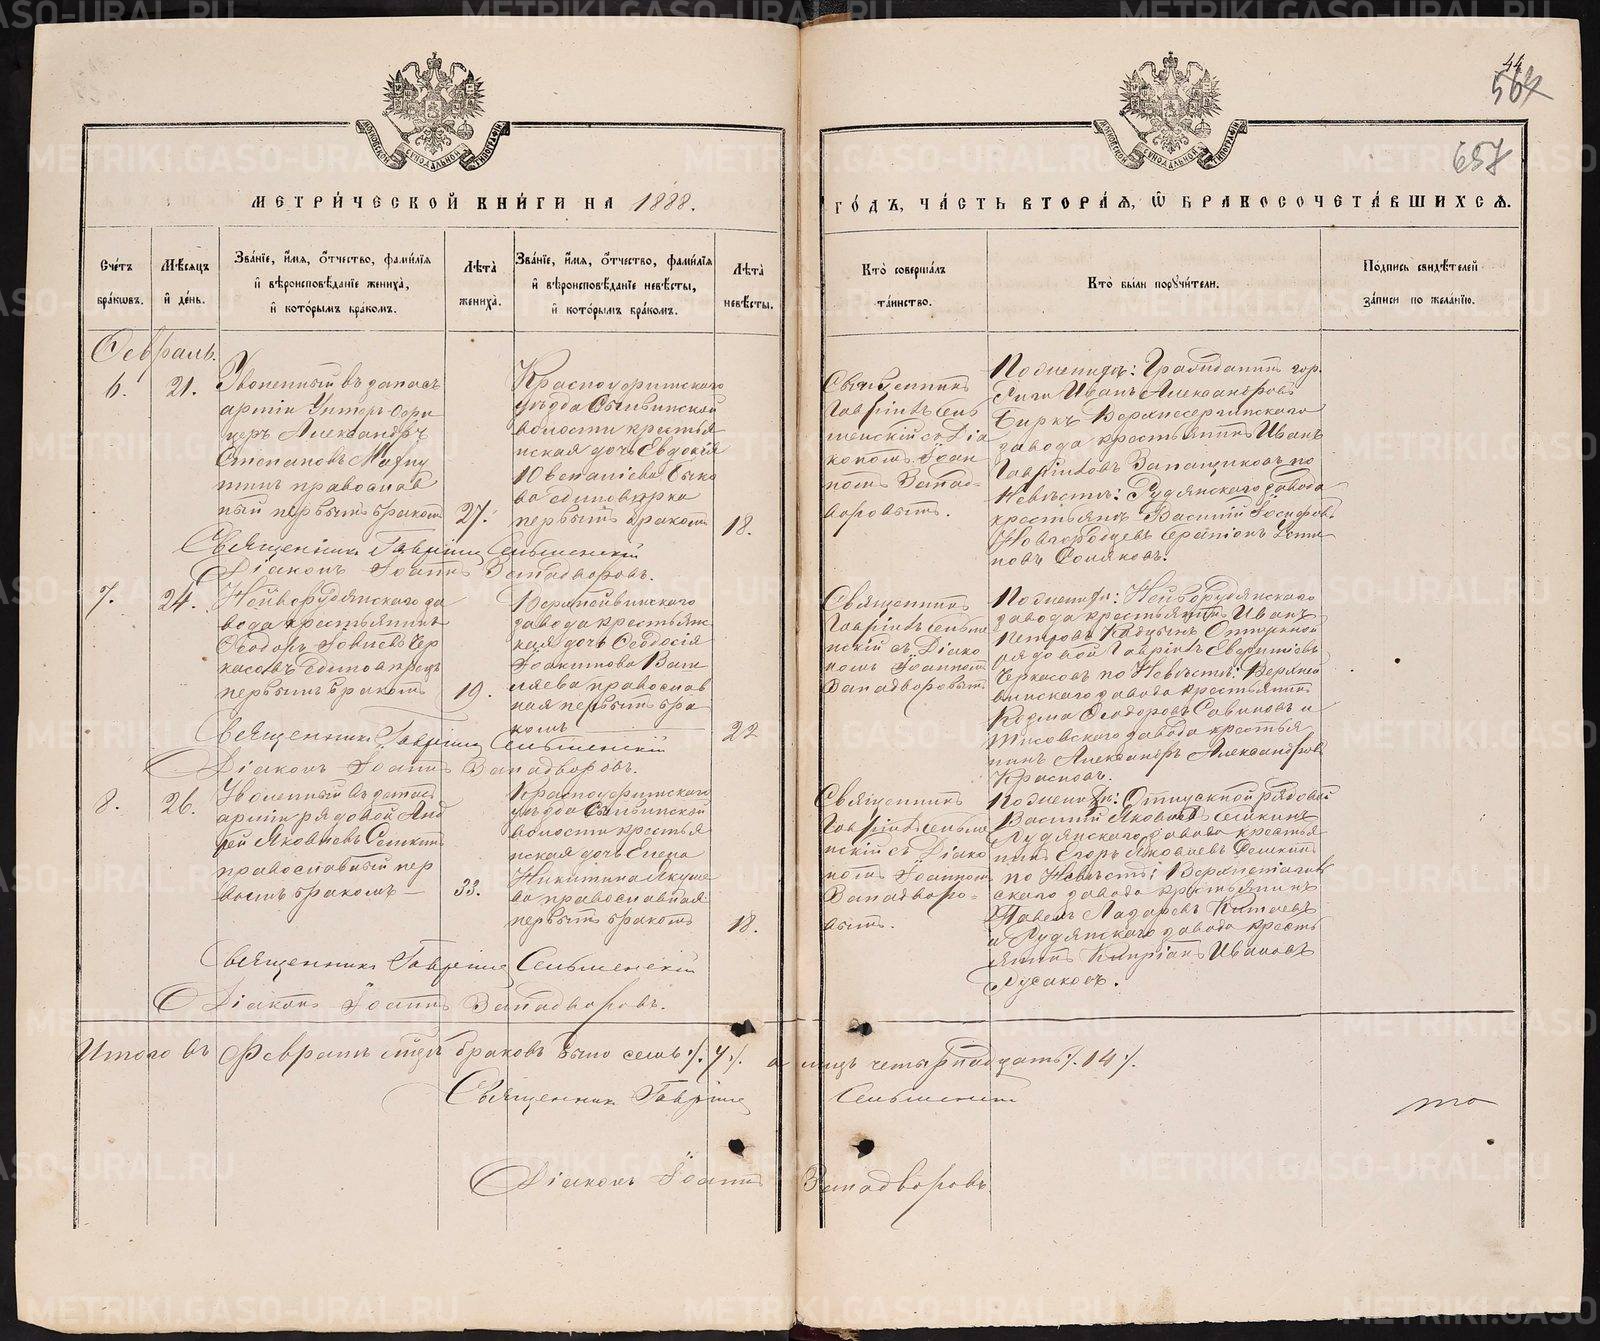 МЕТРИ́ЧЕСКОЙ КНИ́ГИ НА 1888.
ГО́ДЪ, ЧА́СТЬ ВТОРА́Я, Ѿ БРАКОСОЧЕТА́ВШИХСЯ.
44
564
657
МОСКОВСКОЙ СѴНОДАЛЬНОЙ ТИПОГРАФІИ
МОСКОВСКОЙ СѴНОДАЛЬНОЙ ТИПОГРАФІИ
Сче́тъ бра́кѡвъ.
Мѣ́сяцъ и҆ де́нь.
Зва́нїе, и҆́мя, ѻ҆́тчество, фами́лїя и҆ вѣроисповѣ́данїе жениха̀, и҆ кото́рымъ бра́комъ.
Лѣ́та жениха̀.
Зва́нїе, и҆́мя, ѻ҆́тчество, фами́лїя и҆ вѣроисповѣ́данїе невѣ́сты, и҆ кото́рымъ бра́комъ.
Лѣ́та невѣ́сты.
Кто̀ соверша́лъ та́инство.
Кто̀ бы́ли порꙋчи́тели.
По́дпись свидѣ́телей за́писи по жела́нїю.
Февраль.
6.
21.
Уволенный въ запасъ
арміи Унтеръ-офи
церъ Александръ
Степановъ
тинъ православ
ный первымъ бракомъ
27.
Красноуфимскаго
уѣзда Сылвинской
волости крестья
нская дочь Евдокія
Ювеналіева Быко
ва единовѣрка
первымъ бракомъ
18.
Священникъ
Гавріилъ Сель
менскій съ Діа
кономъ Іоан
номъ Запад-
воровымъ.
По женихѣ: Гражданинъ гор.
Риги Иванъ Александровъ
Биркъ Верхнесергинскаго
завода крестьянинъ Иванъ
Гавріиловъ Запащиковъ по
Невѣстѣ: Рудянскаго завода
крестьяне Василій Іосифовъ
Новгородцевъ
новъ
Священникъ Гавріилъ Сельменскій
Діаконъ Іоаннъ Западворовъ.
7.
24.
Нейворудянскаго за
вода крестьянинъ
Ѳеодоръ Чер
касовъ Единовѣрецъ
первымъ бракомъ
19.
Верхнейвинскаго
завода крестьян
ская дочь Ѳеодосія
Іоакимова Ват
ляева православ
ная первымъ бра
комъ
22
Священникъ
Гавріилъ Сельме
нскій съ Діако
номъ Іоанномъ
Западворовымъ
По женихѣ: Нейворудянскаго
завода крестьянинъ Иванъ
Петровъ Отпускной
рядовой Гавріилъ
Черкасовъ по Невѣстѣ: Верхней
винскаго завода крестьянинъ
Козма Ѳеодоровъ Савиновъ и
Тисовскаго завода крестья
нинъ Александръ Александровъ
Красновъ.
Священникъ Гавріилъ Сельменскій
Діаконъ Іоаннъ Западворовъ.
8.
26.
Уволенный въ запасъ
арміи рядовой Анд
рей Яковлевъ Семкинъ
православный пер
вымъ бракомъ
33.
Красноуфимскаго
уѣзда Сылвинской
волости крестья
нская дочь Елена
Никитина Якуше
ва православная
первымъ бракомъ
18.
Священникъ
Гавріилъ Сельме
нскій съ Діако
номъ Іоанномъ
Западворо-
вымъ.
По женихѣ: Отпускной рядовой
Василій Яковлевъ Семкинъ
Рудянскаго завода крестья
нинъ Егоръ Яковлевъ Семкинъ
по Невѣстѣ: Верхнетагиль
скаго завода крестьянинъ
Павелъ Лазаревъ Китаевъ
и Рудянскаго завода кресть
янинъ Кипріанъ Ивановъ
Русаковъ.
Священникъ Гавріилъ Сельменскій
Діаконъ Іоаннъ Западворовъ.
Итого въ Февралѣ мѣсяцѣ браковъ было семь ٪. 7 ٪. а лицъ четырнадцать ٪. 14 ٪.
Священникъ Гавріилъ Сельменскій
Діаконъ Іоаннъ Западворовъ
METRIKI.GASO-URAL.RU